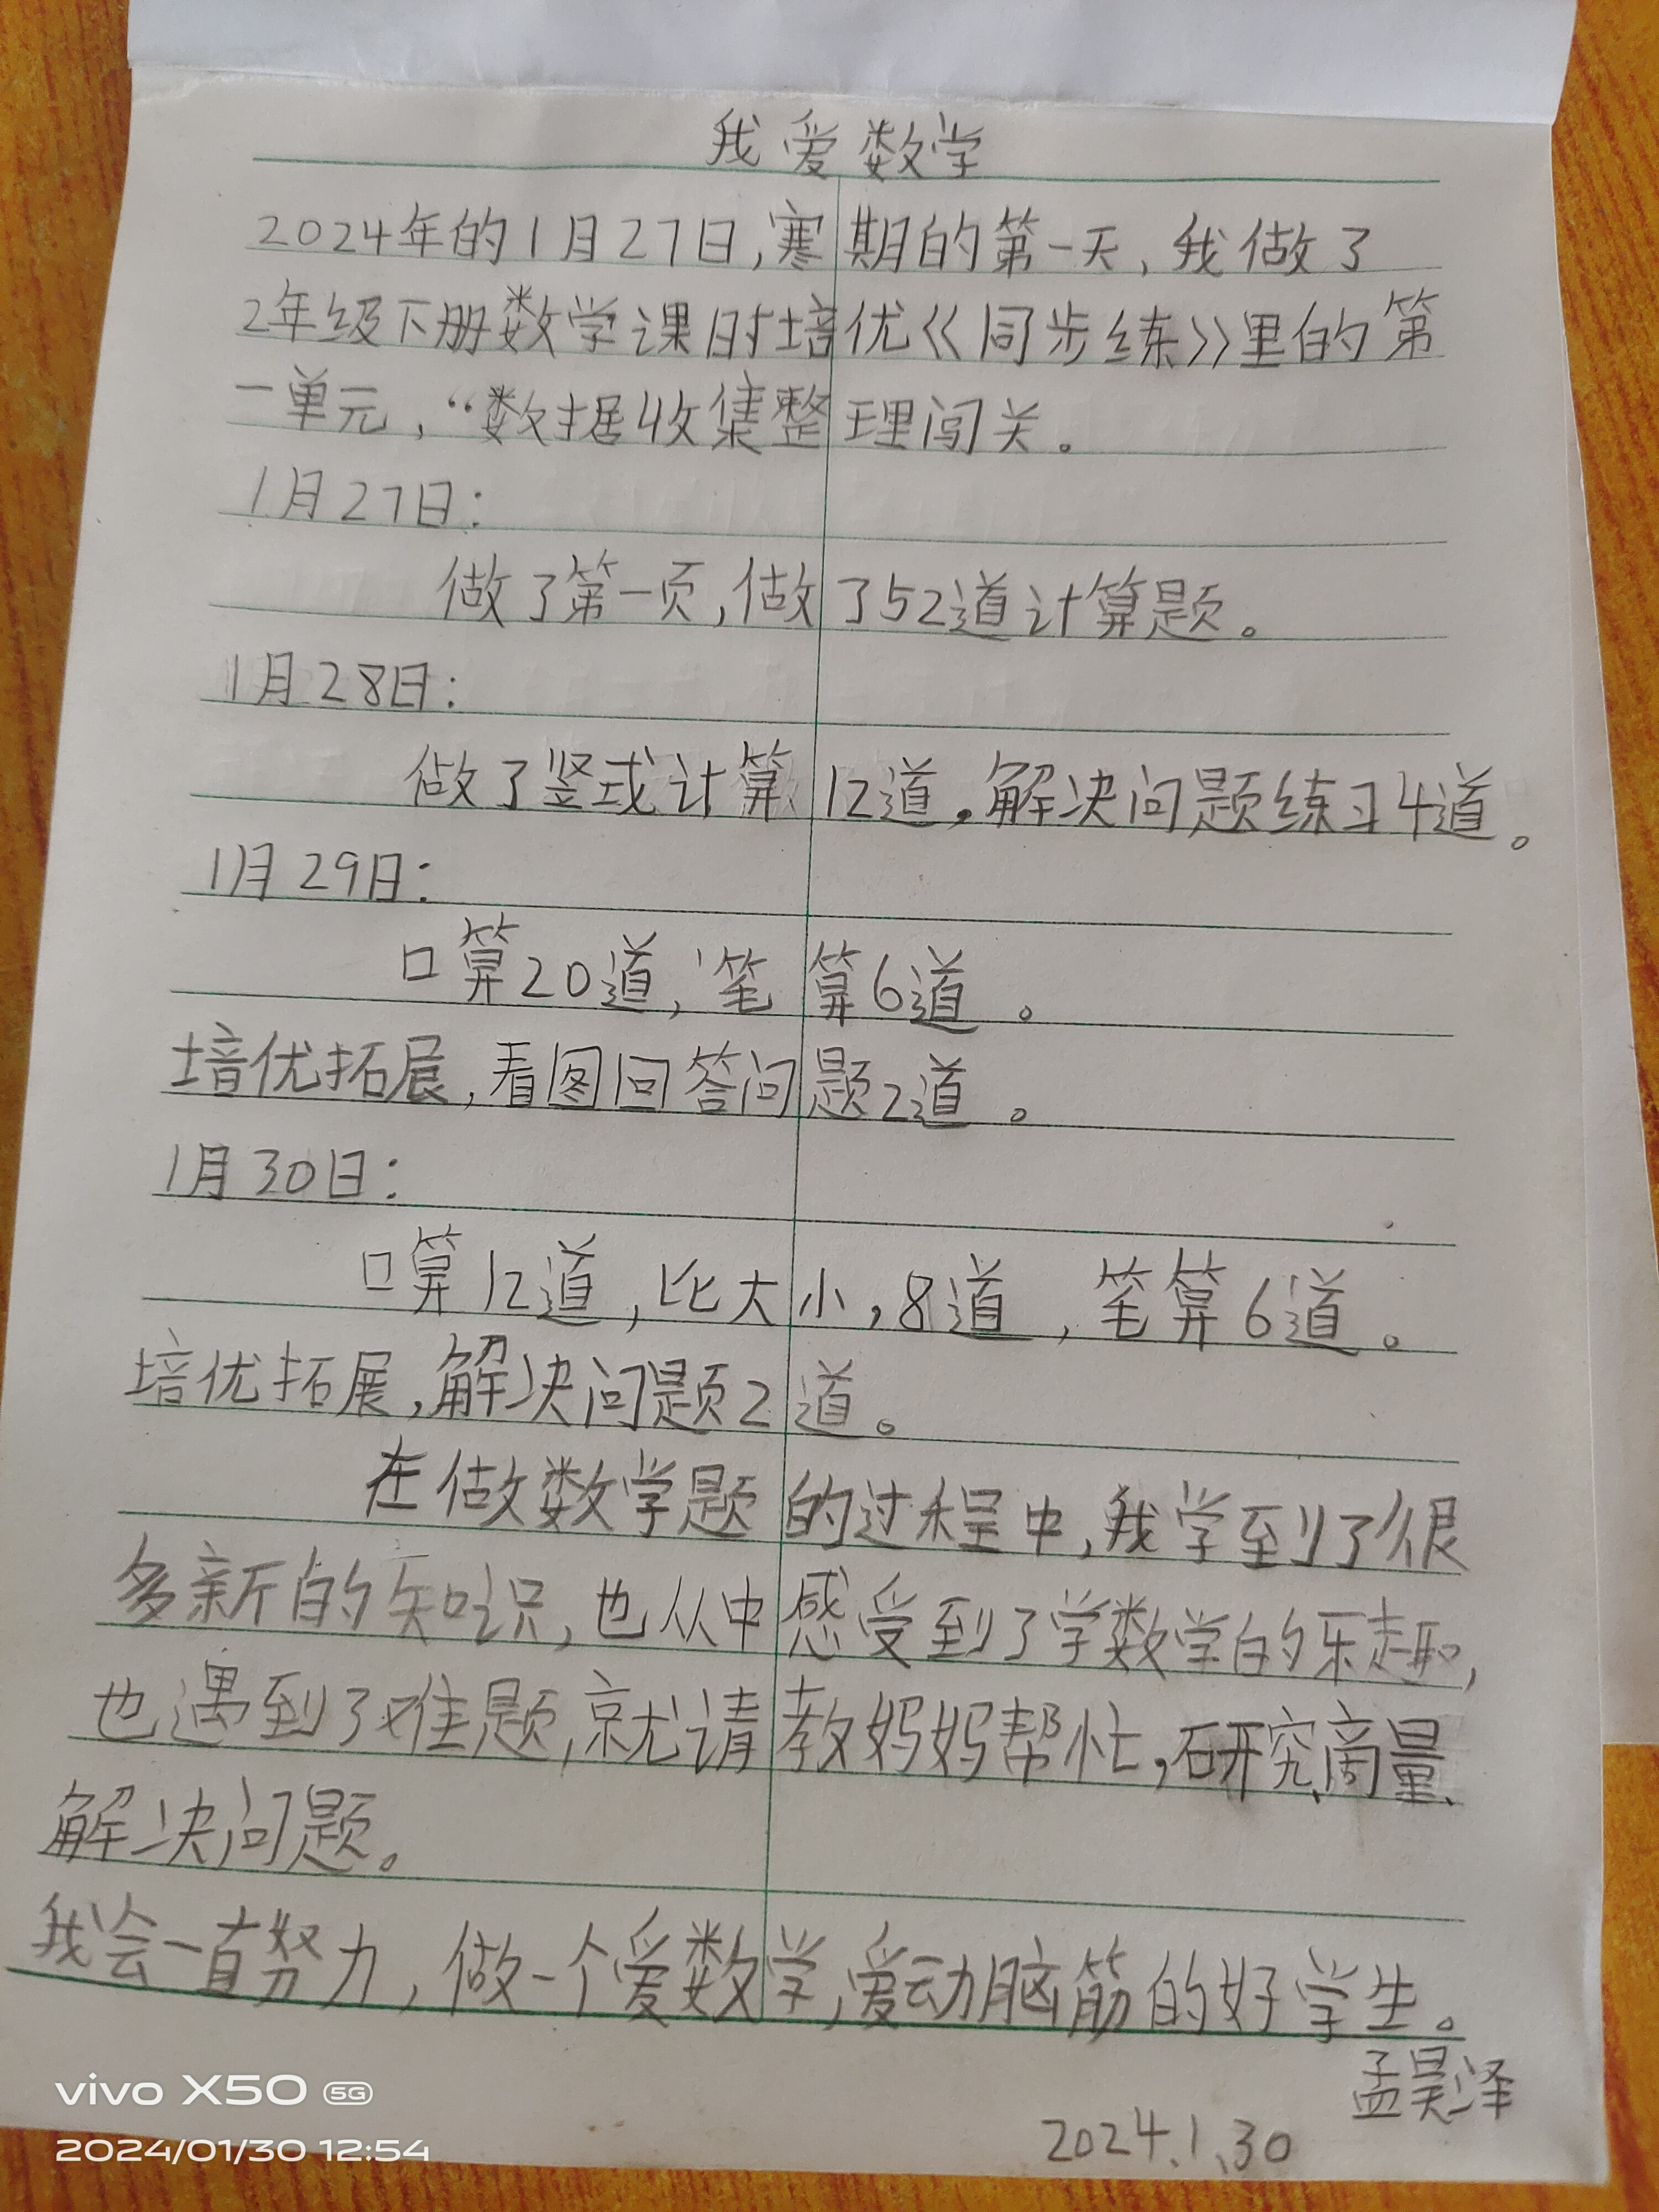 我爱数学
2024年的1月27日,寒期的第一天,我做了
2年级下册数学课时培优《同步练》里的第
一单元,“数据收集整理闯关。
1月27日:
做了第一页,做了52道计算题。
1月28日:
做了竖式计算12道。解决问题练习4道。
1月29日:
口算20道,笔算6道。
培优拓展,看图回答问题2道。
1月30日:
口算12道,比大小,8道,笔算6道。
培优拓展,解决问题2道。
在做数学题的过程中,我学到了很
多新的知识,也从中感受到了学数学的乐趣,
也遇到了难题,就请教妈妈帮忙,研究商量
解决问题。
我会一直努力,做一个爱数学,爱动脑筋的好学生。
孟昊泽
2024.1.30
vivo X50 5G
2024/01/30 12:54